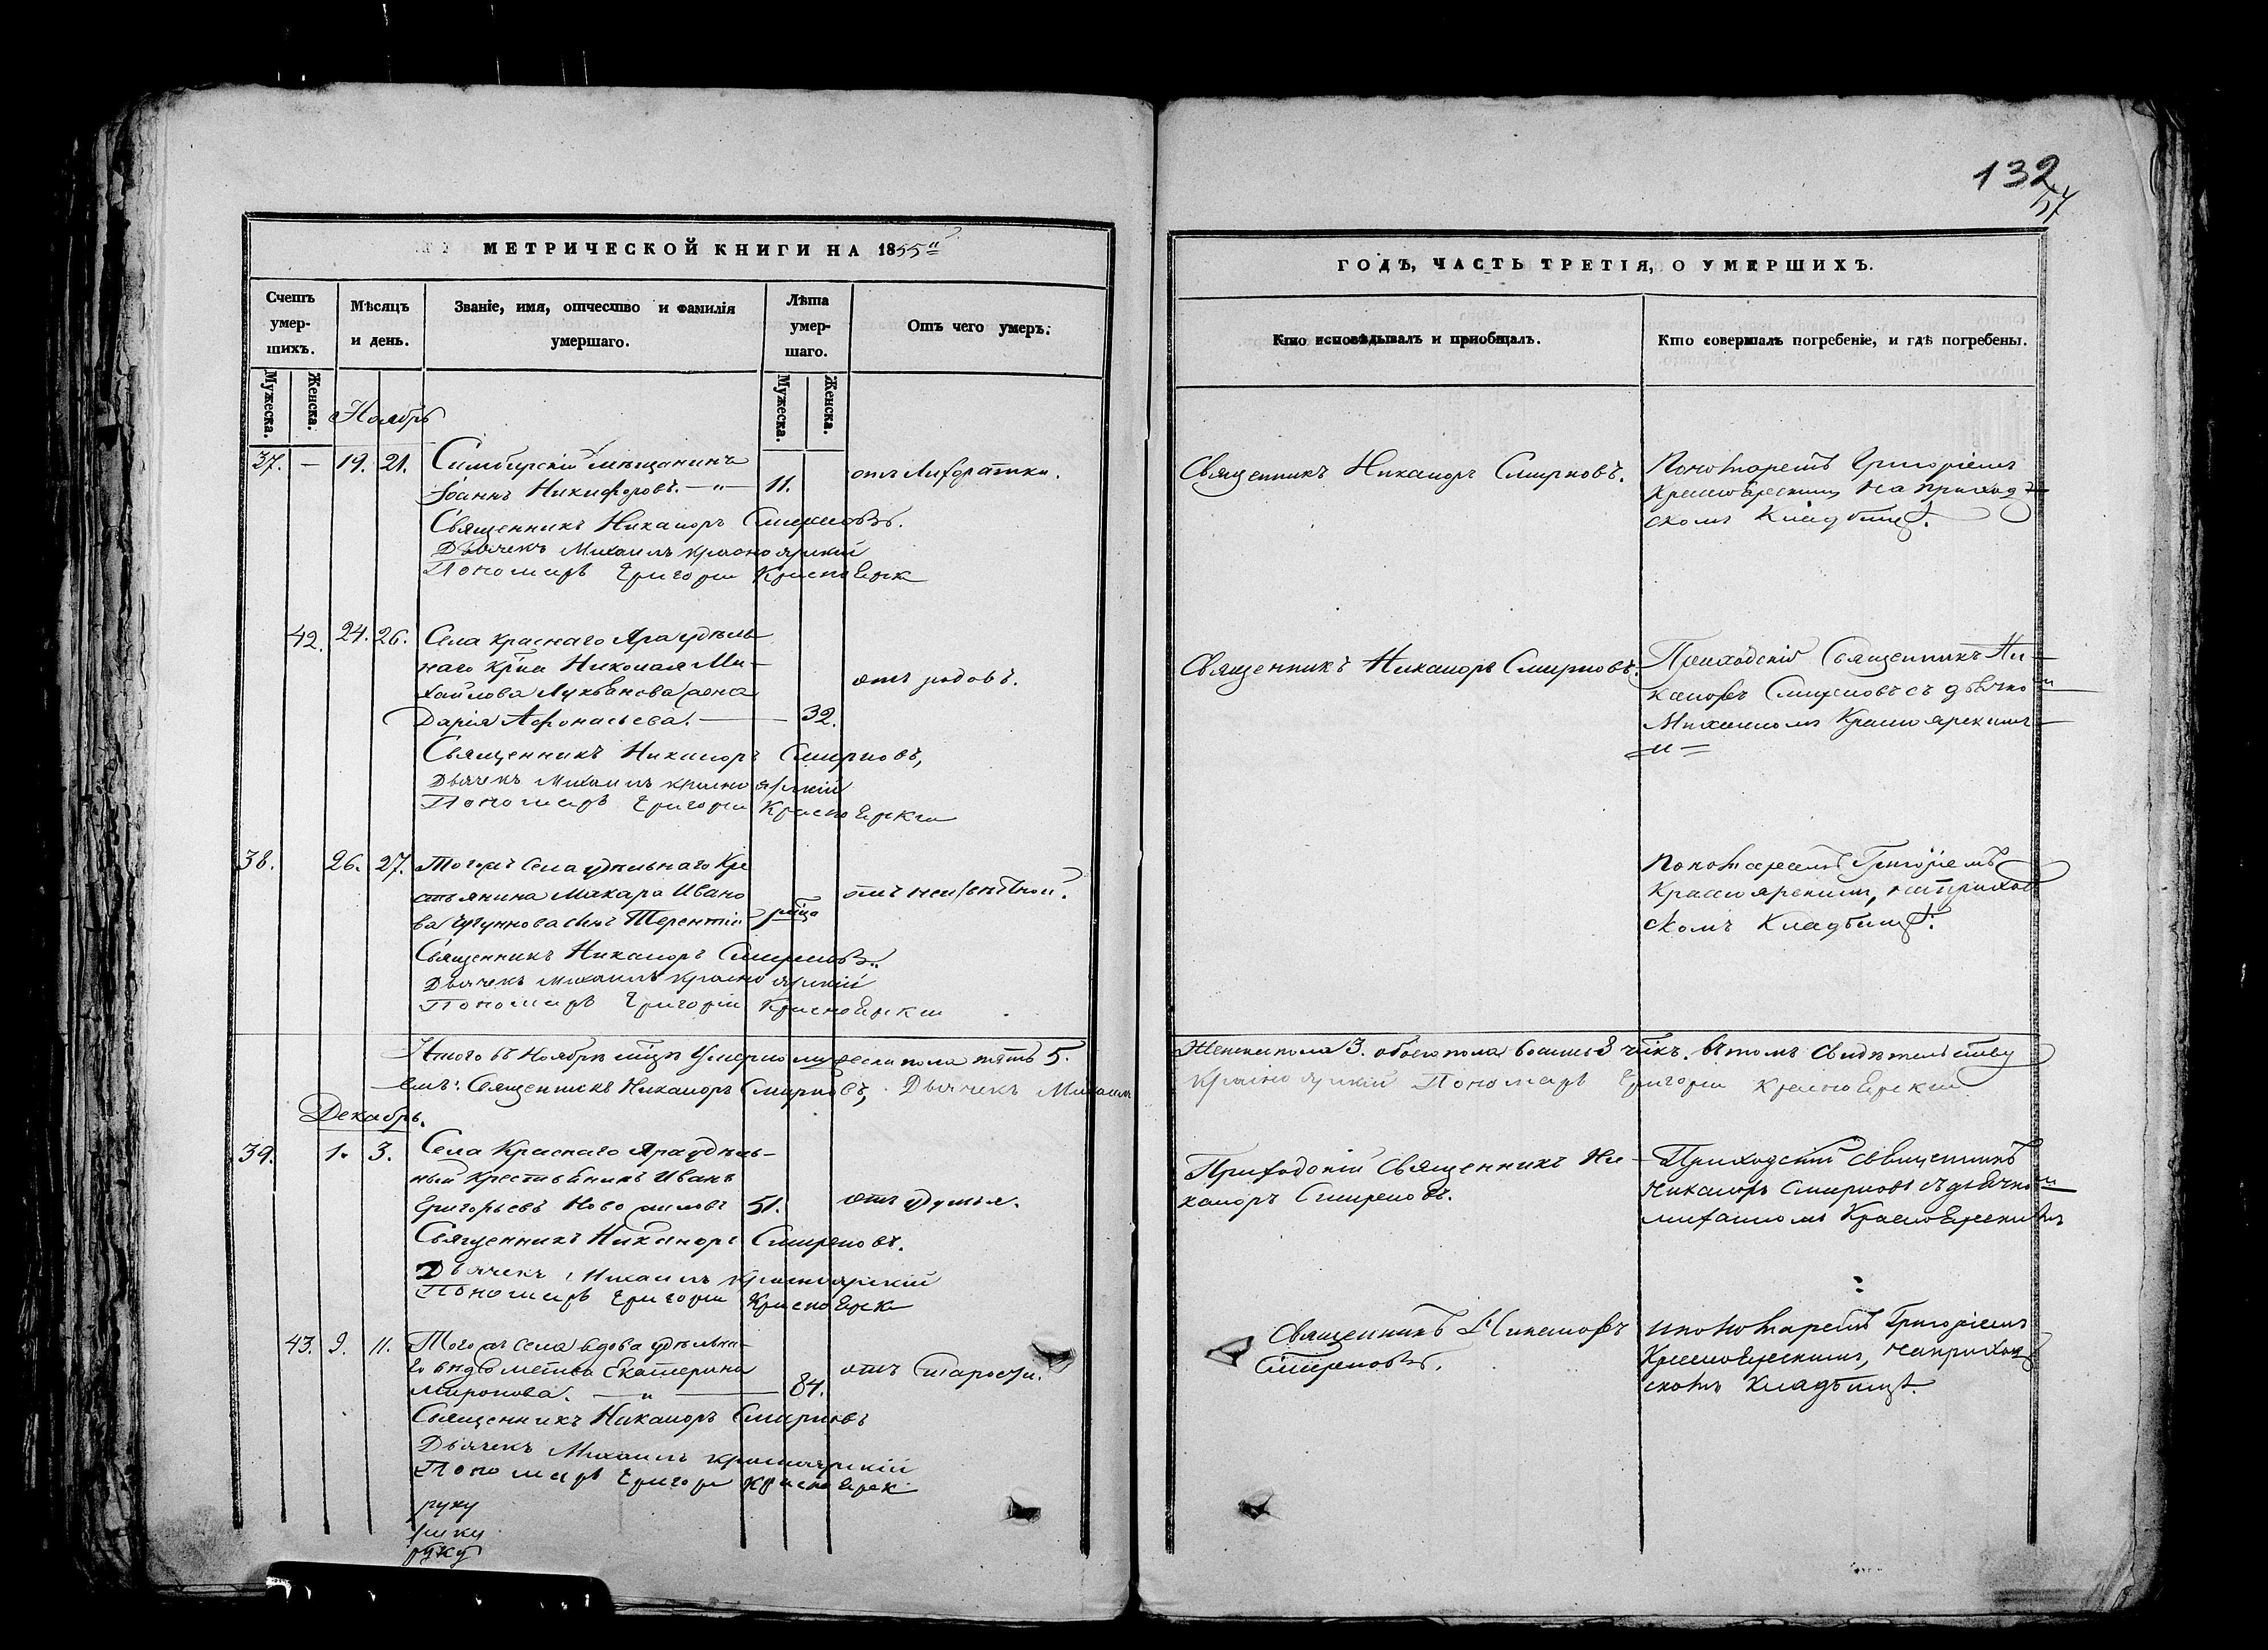 132
57
МЕТРИЧЕСКОЙ КНИГИ НА 1855й
Счетъ умер-шихъ.
Мѣсяцъ и день.
Званіе, имя, отчество и фамилія умершаго.
Лѣта умер-шаго.
Отъ чего умеръ.
Мужеска.
Женска.
Мужеска.
Женска.
Ноябрь
37. — 19. 21. Симбирскій мѣщанинъ
Іоаннъ Никифоровъ. — „ — 11. отъ Лихоратки.
Священникъ Никаноръ Смирновъ.
Дьячекъ Михаилъ Красноярскій
Пономарь Григорій
42. 24. 26. Села Краснаго Яра удѣль
наго кр҃на Николая Ми-
хайлова Лукьянова жена
Дарія Афонасьева. — 32. отъ родовъ.
Священникъ Никаноръ Смирновъ,
Дьячекъ Михаилъ Красноярскій
Пономарь Григорій
38. 26. 27. Тогожъ Села удѣльнаго Кре
стьянина Макара Ивано
ва сынъ Терентій отъ неизвѣстной.
Священникъ Никаноръ Смирновъ.
Дьячекъ Михаилъ Красноярскій
Пономарь Григорій
Итого въ Ноябрѣ мцѣ Умерло мужеска пола пять 5.
емъ: Священникъ Никаноръ Смирновъ, Дьячекъ Михаилъ
Декабрь.
39. 1. 3. Села Краснаго Яра удѣль-
ный крестьянинъ Иванъ
Григорьевъ 51. отъ удушья.
Священникъ Никаноръ Смирновъ.
Дьячекъ Михаилъ Красноярскій
Пономарь Григорій
43. 9. 11. Тогожъ села вдова удѣльна-
го вѣдомства Екатерина
Миронова. — „ — 84. отъ Старости.
Священникъ Никаноръ Смирновъ
Дьячекъ Михаилъ Красноярскій
Пономарь Григорій
руку
руку
руку
ГОДЪ, ЧАСТЬ ТРЕТІЯ, О УМЕРШИХЪ.
Кто исповѣдывалъ и пріобщалъ.
Кто совершалъ погребеніе, и гдѣ погребены.
Священникъ Никаноръ Смирновъ.
Пономаремъ Григоріемъ
Красноярскимъ на приход-
скомъ Кладбищѣ.
Священникъ Никаноръ Смирновъ.
Приходскій Священникъ Ни-
каноръ Смирновъ съ дьячко
Михаиломъ Красноярскимъ
— „ —
Пономаремъ Григоріемъ
Красноярскимъ, на приход
скомъ Кладбищѣ.
Женска пола 3. обоего пола восемь 8 члкъ. въ томъ Свидѣтельству
Красноярскій Пономарь Григорій
Приходскій Священникъ Ни-
каноръ Смирновъ.
Приходскій Священникъ
Никаноръ Смирновъ съ дьячко
Михаиломъ Красноярскимъ
Священникъ Никаноръ
Смирновъ.
и пономаремъ Григоріемъ
Красноярскимъ, на приход
скомъ Кладбищѣ.